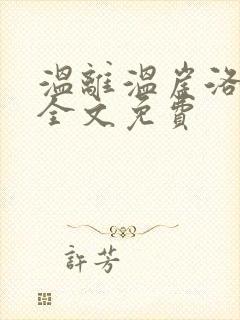 溫離溫崖洛
全文免費
許芳